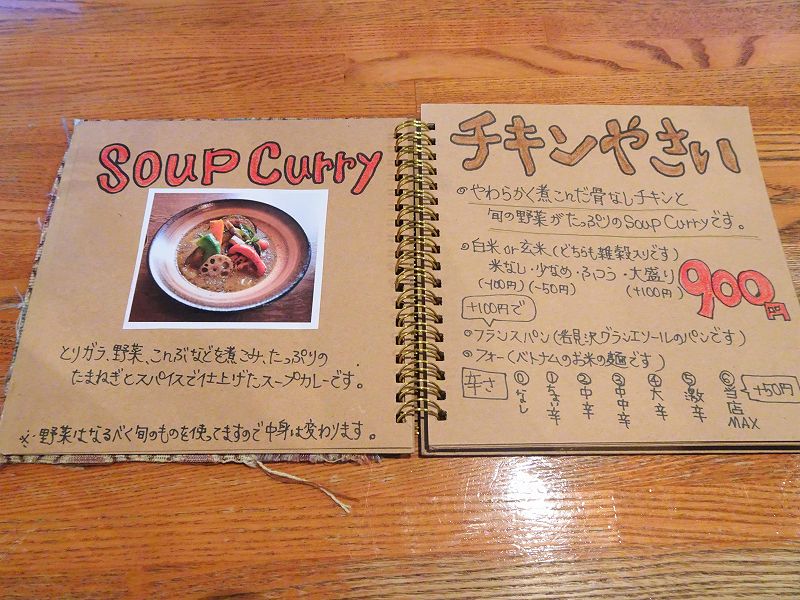 Soup Curry
とりガラ、野菜、こんぶなどを煮こみ、たっぷりの
たまねぎとスパイスで仕上げたスープカレーです。
※野菜はなるべく旬のものを使ってますので中身は変わります。
チキンやさい
やわらかく煮こんだ骨なしチキンと
旬の野菜がたっぷりのSoup Curryです。
白米or玄米(どちらも雑穀入りです)
米なし・少なめ・ふつう・大盛り
(-100円)(-50円) (+100円)
900円
+100円で
フランスパン(岩見沢グランエソールのパンです)
フォー(ベトナムのお米の麺です)
辛さ
⓪なし
①ちょい辛
②中辛
③中中辛
④大辛
⑤激辛
⑥当店MAX
+50円